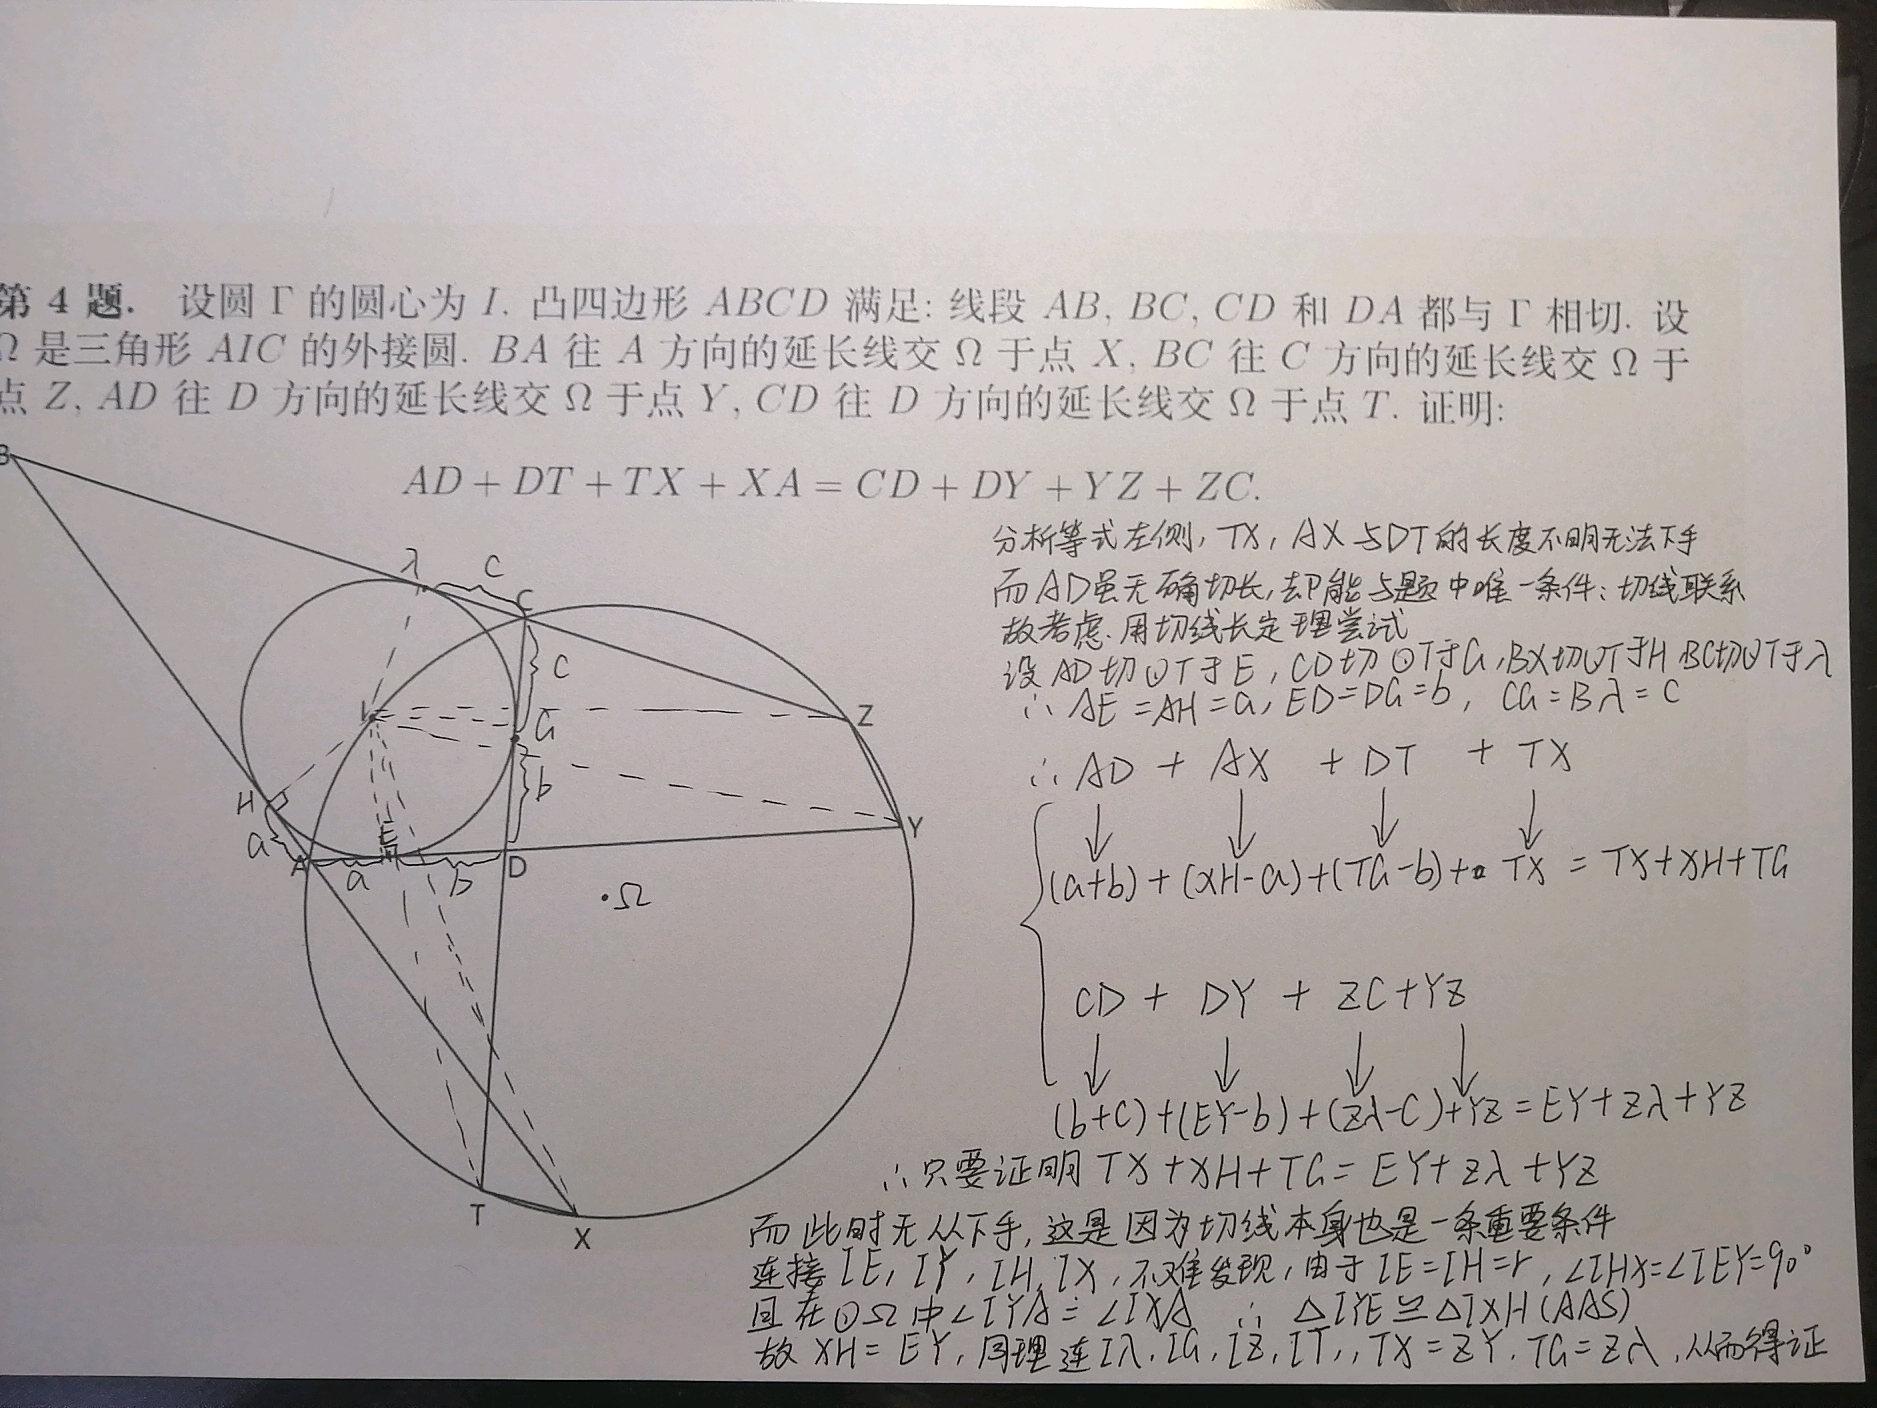 第 4 题. 设圆 Γ 的圆心为 I. 凸四边形 ABCD 满足: 线段 AB, BC, CD 和 DA 都与 Γ 相切. 设
Ω 是三角形 AIC 的外接圆. BA 往 A 方向的延长线交 Ω 于点 X, BC 往 C 方向的延长线交 Ω 于
点 Z, AD 往 D 方向的延长线交 Ω 于点 Y, CD 往 D 方向的延长线交 Ω 于点 T. 证明:
AD + DT + TX + XA = CD + DY + YZ + ZC.
B
λ
c
C
c
I
Z
G
H
b
a
E
Y
A
a
b
D
·Ω
T
X
分析等式左侧, TX, AX与DT的长度不明无法下手
而AD虽无确切长,却能与题中唯一条件:切线联系
故考虑用切线长定理尝试
设AD切⊙T于E, CD切⊙T于G, BX切⊙T于H BC切⊙T于λ
∴ AE=AH=a, ED=DG=b, CG=Bλ=C
∴ AD + AX + DT + TX
(a+b)+(XH-a)+(TG-b)+TX = TX+XH+TG
CD + DY + ZC+YZ
(b+c)+(EY-b)+(Zλ-C)+YZ=EY+Zλ+YZ
∴只要证明 TX+XH+TG= EY+Zλ+YZ
而此时无从下手,这是因为切线本身也是一条重要条件
连接IE, IY, IH, IX, 不难发现, 由于IE=IH=r, ∠IHX=∠IEY=90°
且在⊙Ω中∠IYA=∠IXA ∴ △IYE≌△IXH(AAS)
故XH=EY,同理连Iλ, IG, IZ, IT,, TX=ZY, TG=Zλ,从而得证